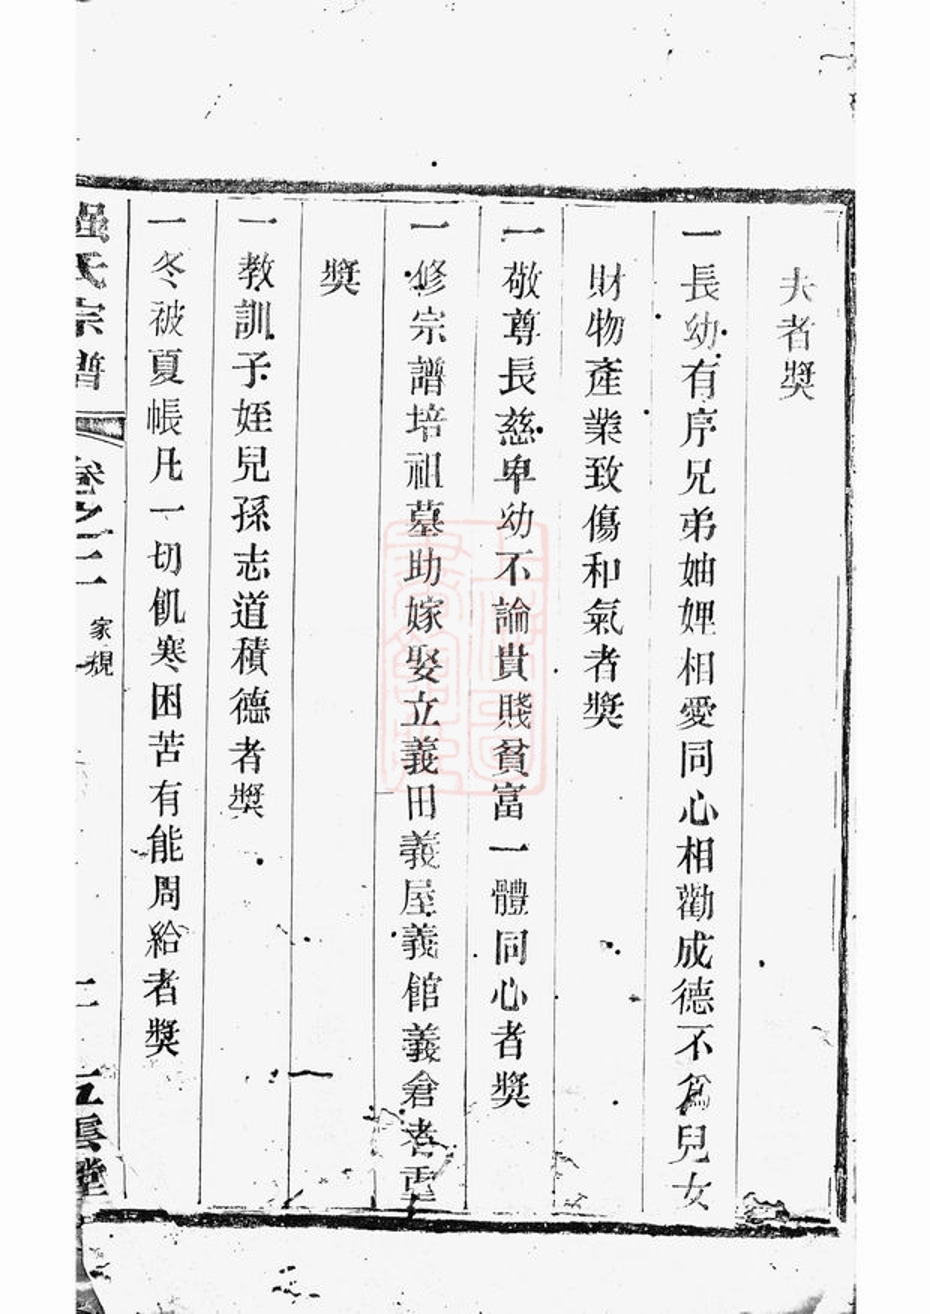 夫者奬
一長幼有序兄弟妯娌相愛同心相勸成德不爲兒女
財物產業致傷和氣者奬
一敬尊長慈卑幼不論貴賤貧富一體同心者奬
一修宗譜培祖墓助嫁娶立義田義屋義館義倉者重
奬
一教訓子姪兒孫志道積德者奬
一冬被夏帳凡一切飢寒困苦有能周給者奬
氏宗譜 卷之二 家規 五雲堂